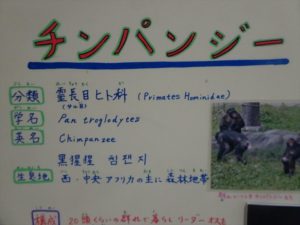 チンパンジー
分類 霊長目ヒト科 (Primates Hominidae)
(サル目)
学名 Pan troglodytes
英名 Chimpanzee
黒猩猩 침팬지
生息地 西・中央アフリカの主に森林地帯
構成 20頭くらいの群れで暮らし リーダー